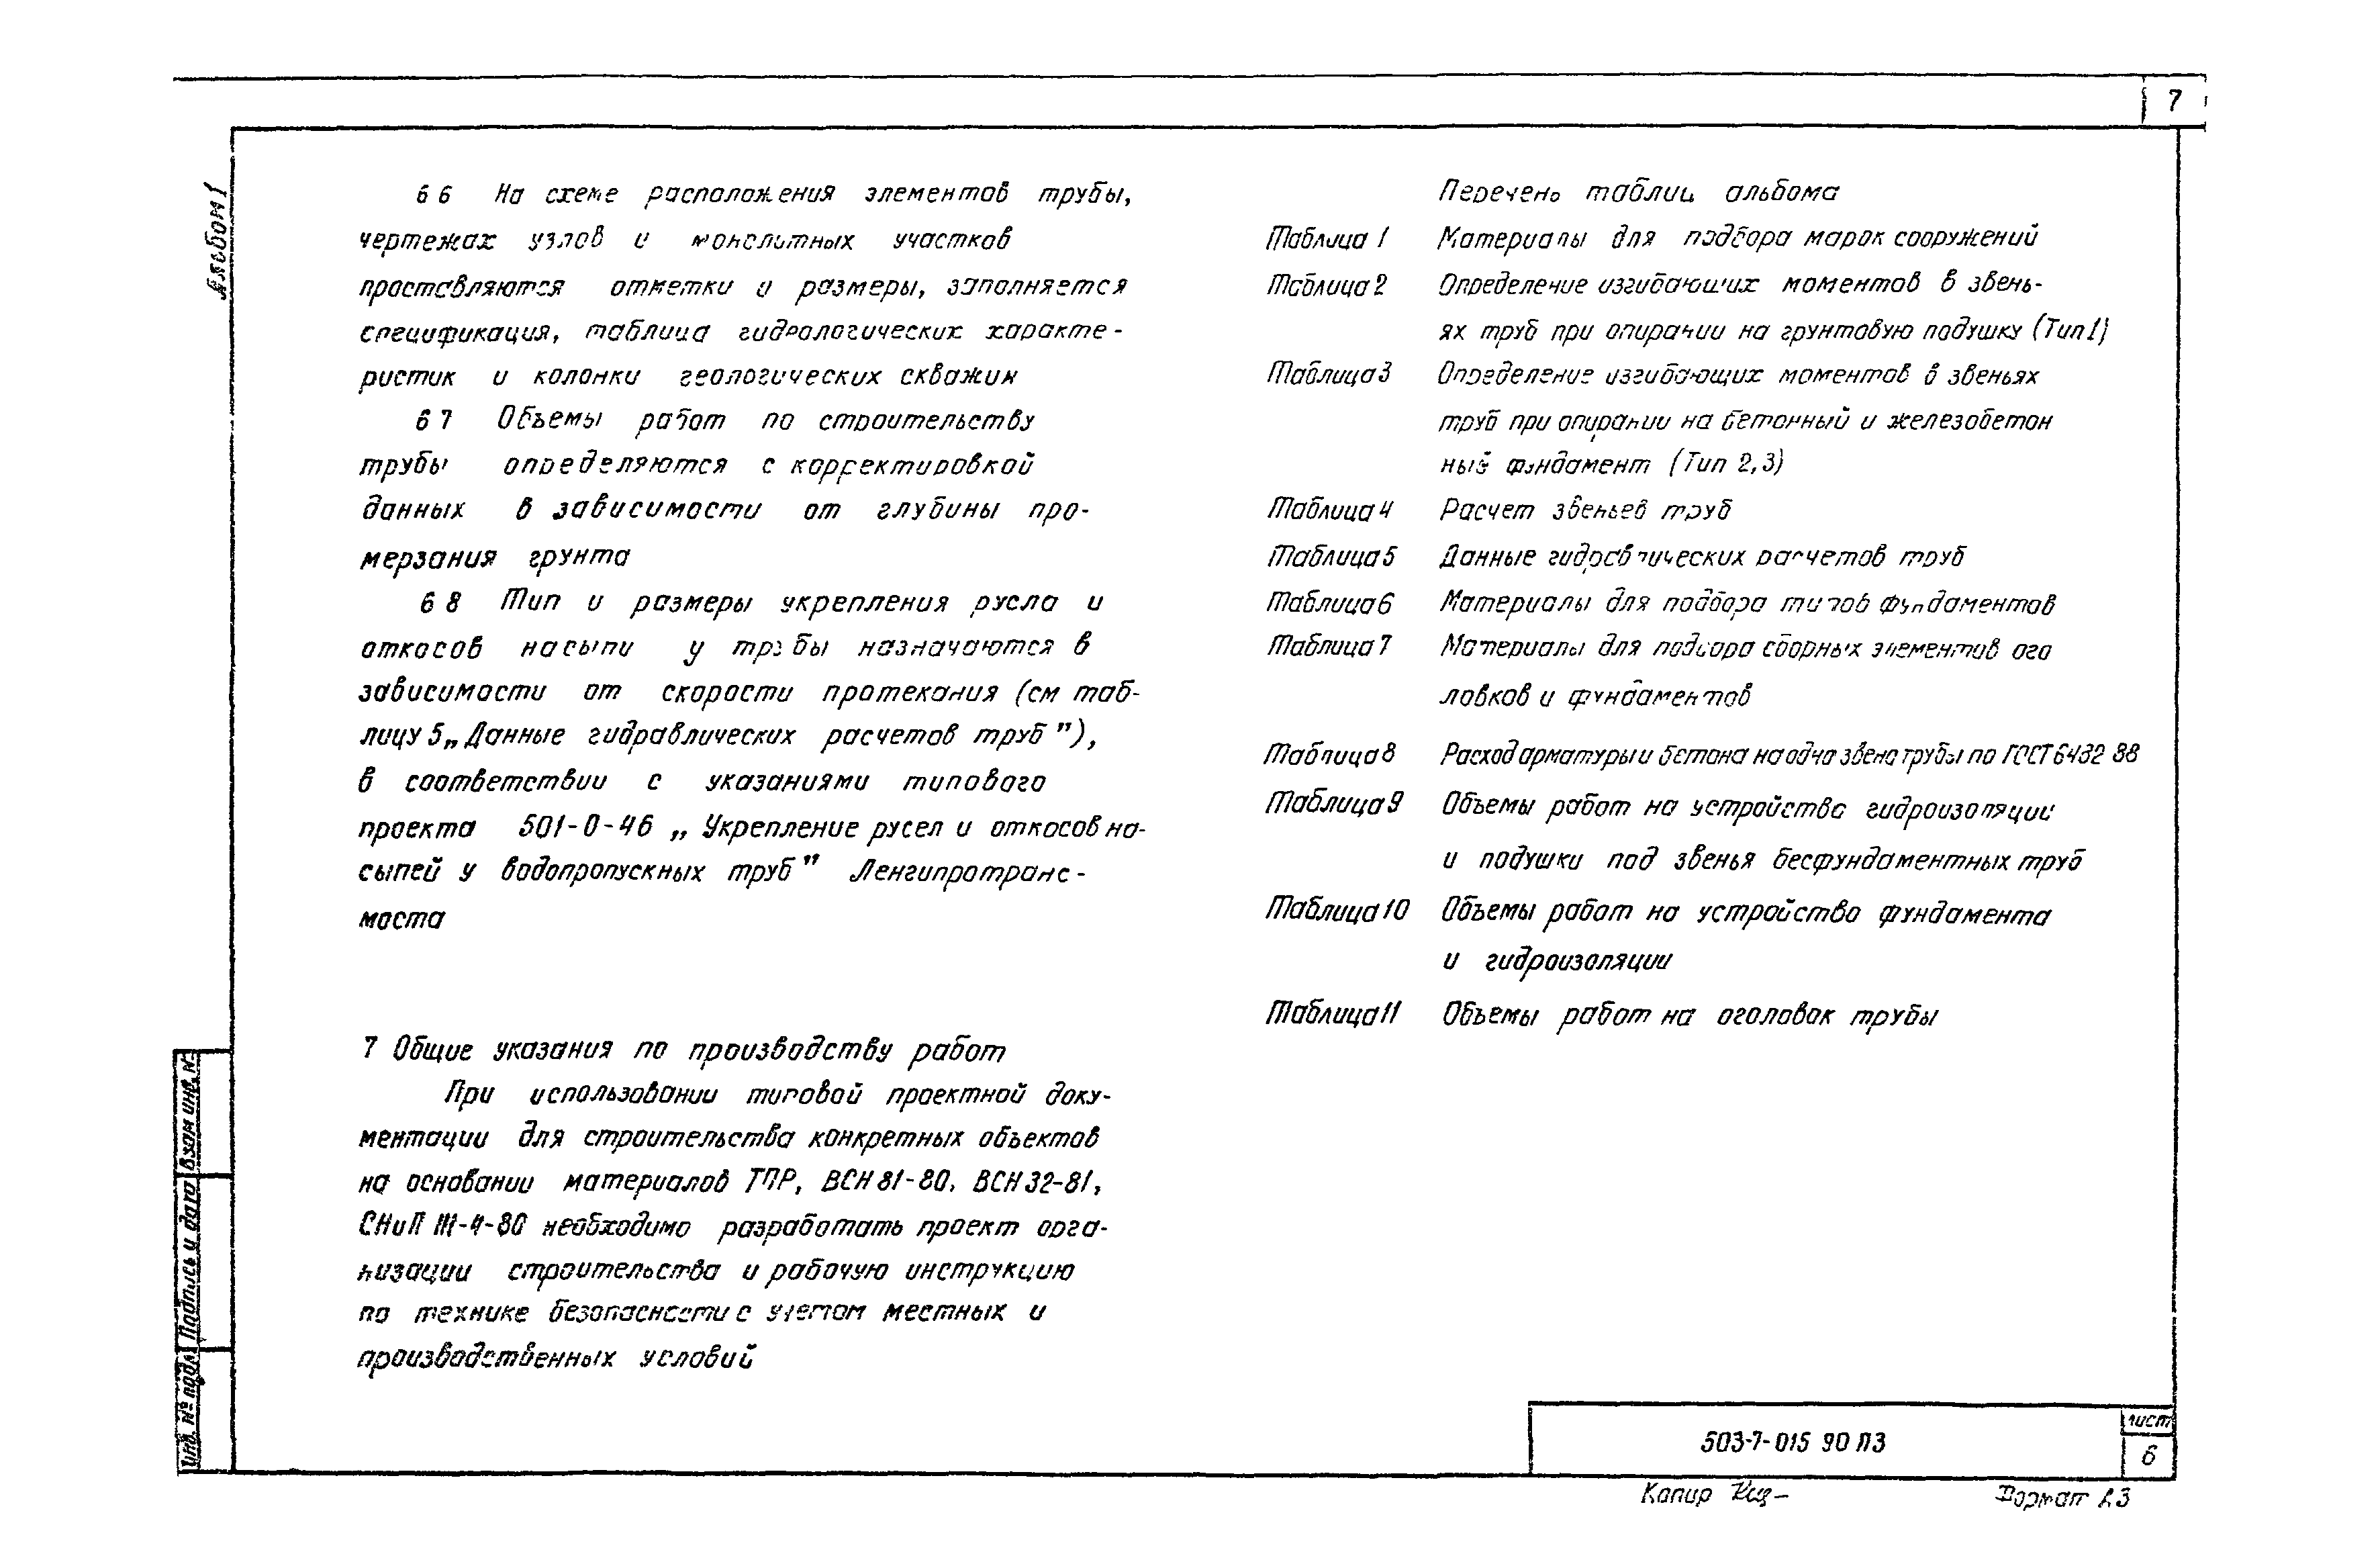 7
Альбом 1
6 6 На схеме расположения элементов трубы,
чертежах узлов и монолитных участков
проставляются отметки и размеры, заполняется
спецификация, таблица гидрологических характе-
ристик и колонки геологических скважин
6 7 Объемы работ по строительству
трубы определяются с корректировкой
данных в зависимости от глубины про-
мерзания грунта
6 8 Тип и размеры укрепления русла и
откосов насыпи у трубы назначаются в
зависимости от скорости протекания (см таб-
лицу 5 „Данные гидравлических расчетов труб"),
в соответствии с указаниями типового
проекта 501-0-46 „Укрепление русел и откосов на-
сыпей у водопропускных труб" Ленгипротранс-
моста
7 Общие указания по производству работ
При использовании типовой проектной доку-
ментации для строительства конкретных объектов
на основании материалов ТПР, ВСН 81-80, ВСН 32-81,
СНиП III-4-80 необходимо разработать проект орга-
низации строительства и рабочую инструкцию
по технике безопасности с учетом местных и
производственных условий
Перечень таблиц альбома
Таблица 1 Материалы для подбора марок сооружений
Таблица 2 Определение изгибающих моментов в звень-
ях труб при опирании на грунтовую подушку (Тип 1)
Таблица 3 Определение изгибающих моментов в звеньях
труб при опирании на бетонный и железобетон
ный фундамент (Тип 2,3)
Таблица 4 Расчет звеньев труб
Таблица 5 Данные гидравлических расчетов труб
Таблица 6 Материалы для подбора типов фундаментов
Таблица 7 Материалы для подбора сборных элементов ого
ловков и фундаментов
Таблица 8 Расход арматуры и бетона на одно звено трубы по ГОСТ 6482 88
Таблица 9 Объемы работ на устройство гидроизоляции
и подушки под звенья бесфундаментных труб
Таблица 10 Объемы работ на устройство фундамента
и гидроизоляции
Таблица 11 Объемы работ на оголовок трубы
Взам инв. №
Подпись и дата
Инв. № подл
503-7-015 90 ПЗ
лист
6
Копир
Формат А3